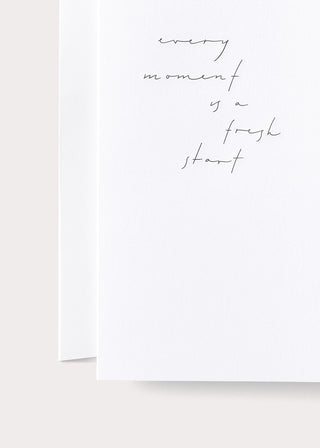 every
moment
is a
fresh
start